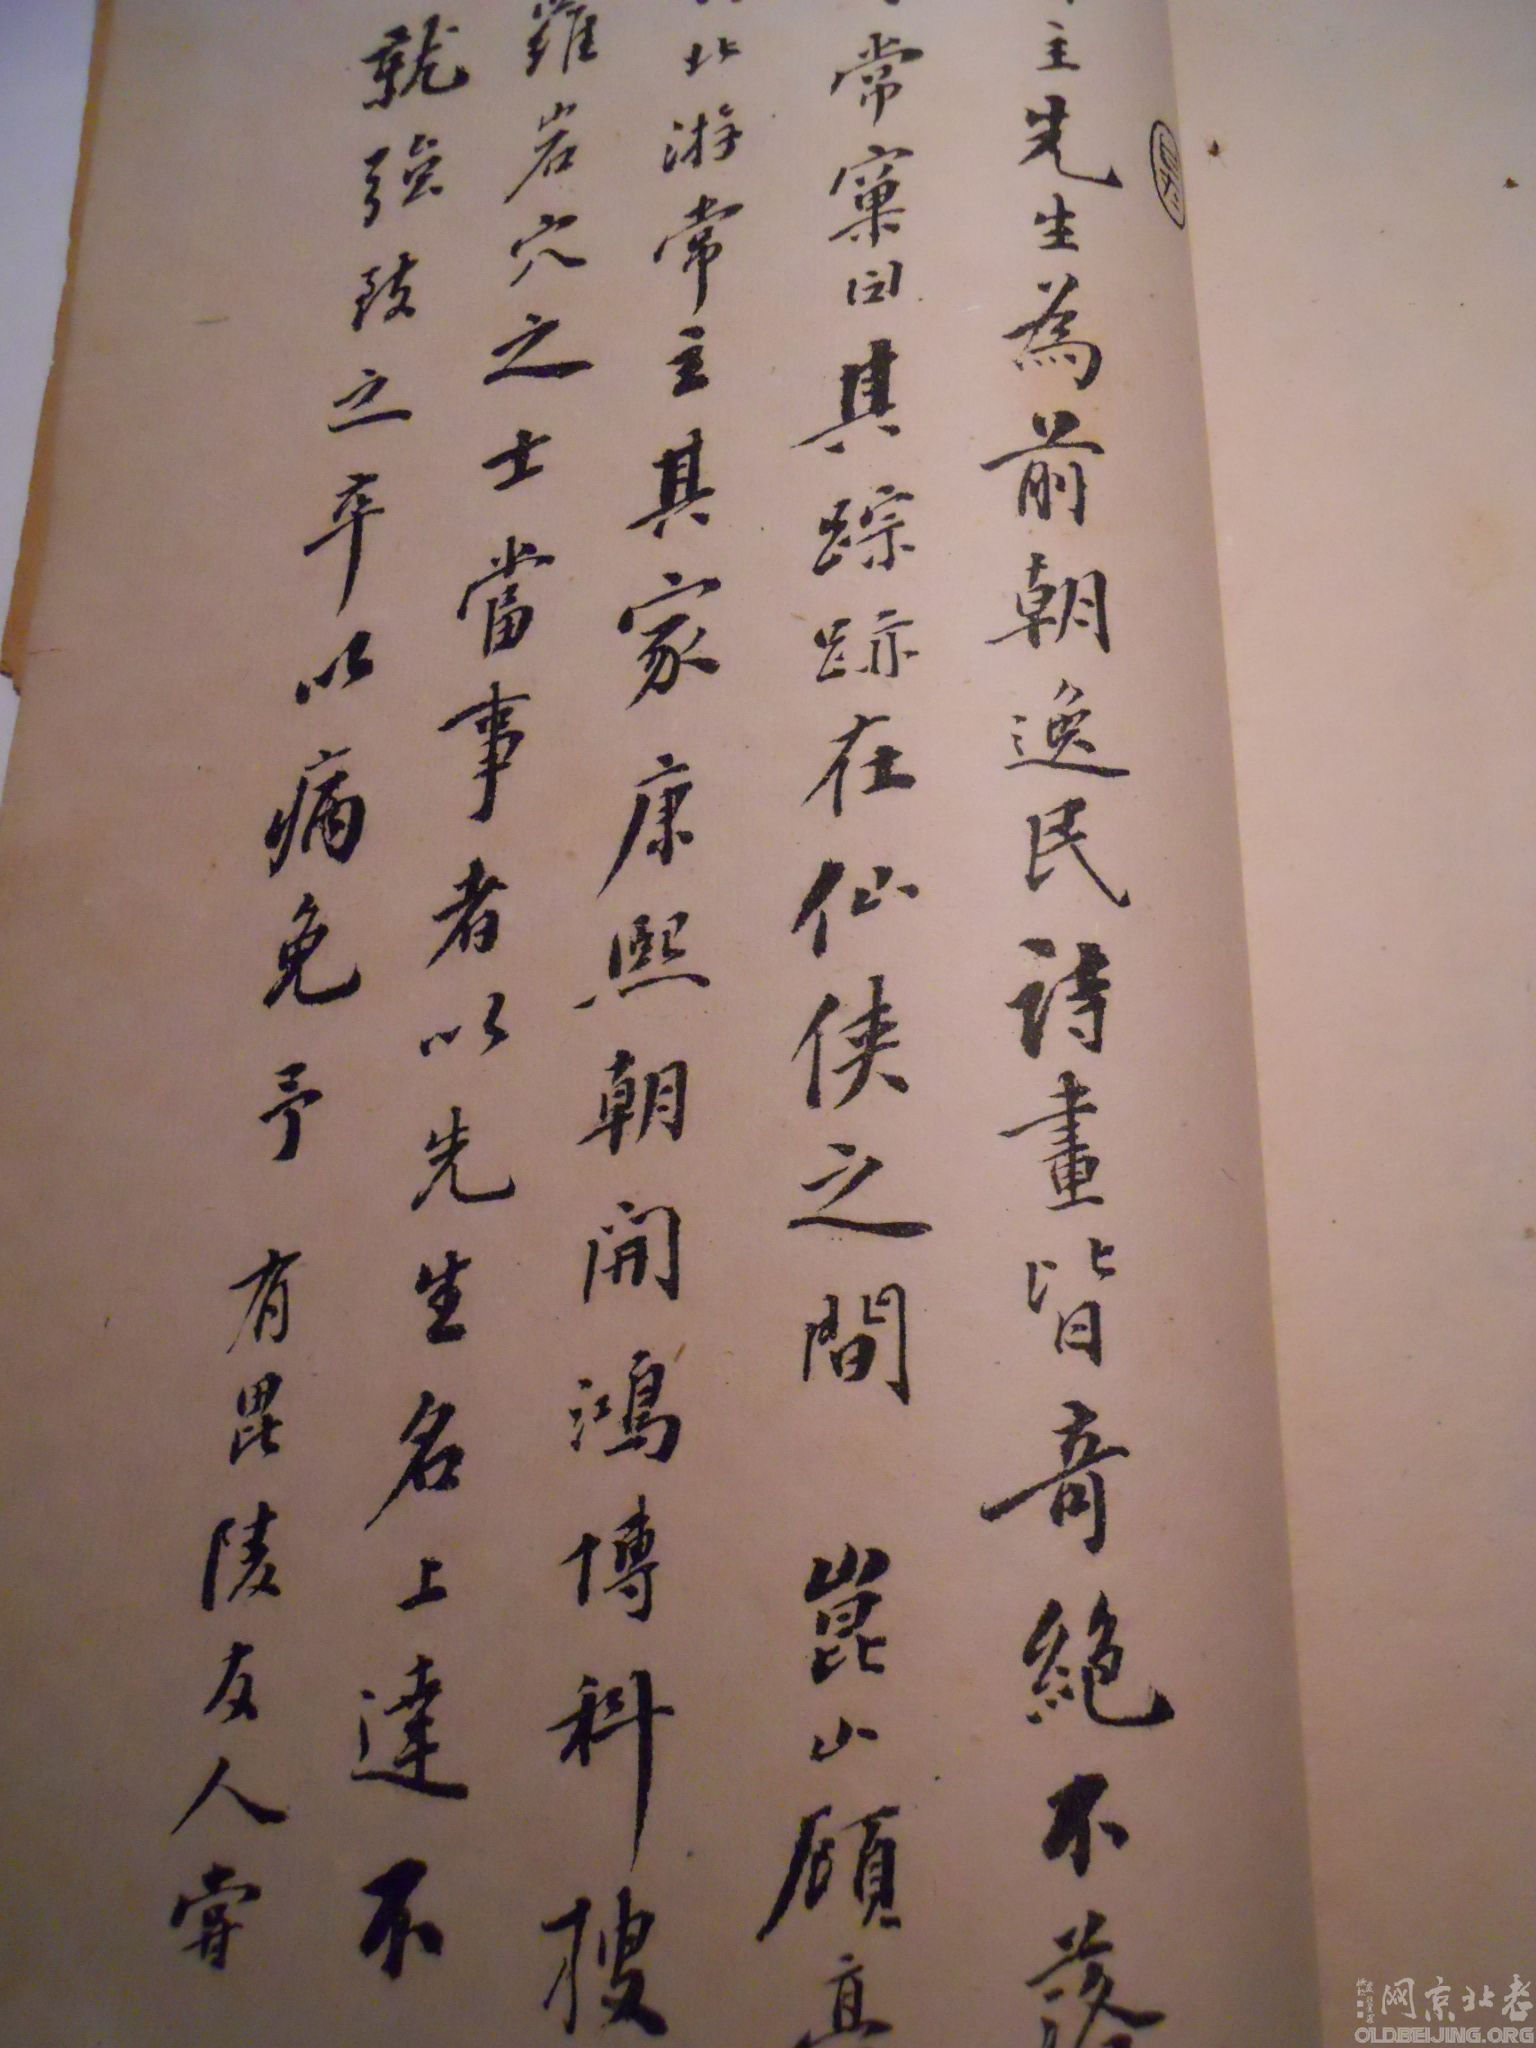 主先生為前朝逸民詩畫皆奇絕不落
常窠臼其踪跡在仙俠之間 崑山顧
北游常主其家康熙朝開鴻博科搜
羅岩穴之士當事者以先生名上達不
就強致之卒以病免予 有毘陵友人嘗
老北京网
OLDBEIJING.ORG